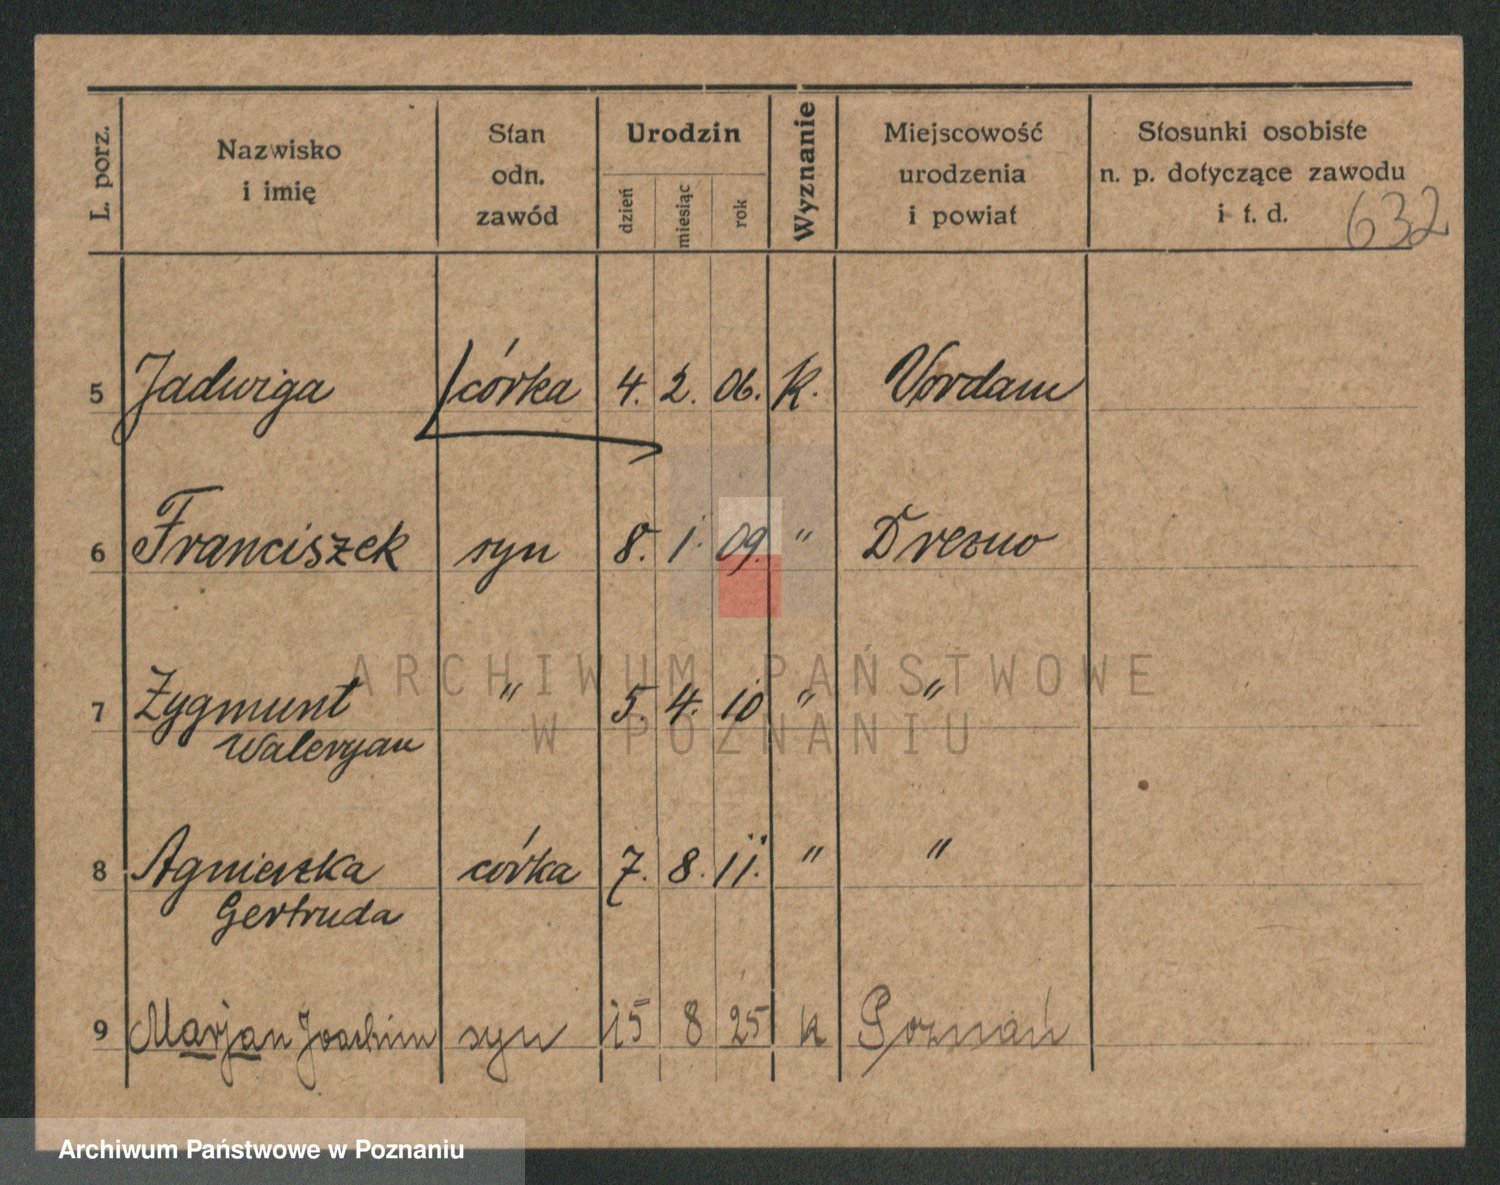 L. porz. Nazwisko i imię Stan odn. zawód Urodzin dzień miesiąc rok Wyznanie Miejscowość urodzenia i powiat Stosunki osobiste n. p. dotyczące zawodu i t. d.
632
5 Jadwiga córka 4. 2. 06. K. Vordam
6 Franciszek syn 8. 1. 09. " Drezno
ARCHIWUM PAŃSTWOWE
7 Zygmunt " 5. 4. 10 " "
W POZNANIU
Waleryan
8 Agnieszka córka 7. 8. 11. " "
Gertruda
9 Marjan Joachim syn 15 8 25 k Poznań
Archiwum Państwowe w Poznaniu